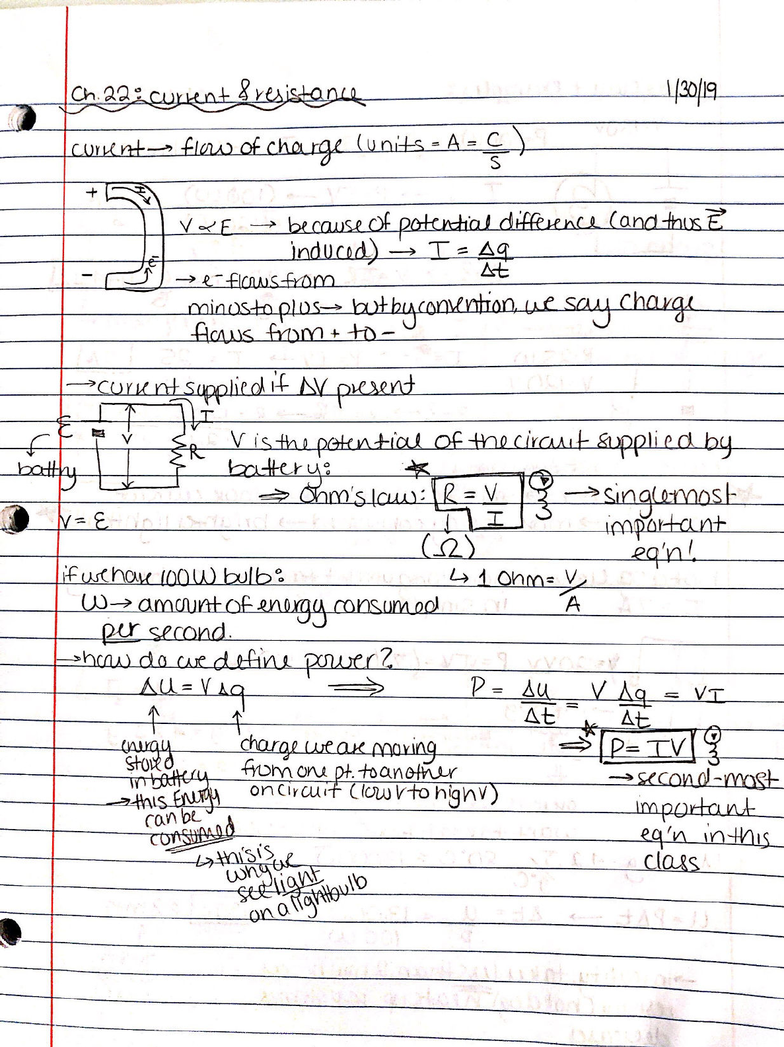 Ch. 22: current & resistance 1/30/19
current → flow of charge (units = A = C/S)
+ I
V ∝ E → because of potential difference (and thus E⃗
induced) → I = Δq/Δt
- e⁻
→ e⁻ flows from
minus to plus → but by convention, we say charge
flows from + to -
→ current supplied if ΔV present
ℰ V I R
battry
V = ℰ
V is the potential of the circuit supplied by
battery:
⇒ Ohm's law: R = V/I → single most
important
eq'n!
(Ω)
↳ 1 Ohm = V/A
if we have 100W bulb:
W → amount of energy consumed
per second.
→ how do we define power?
ΔU = VΔq ⇒ P = Δu/Δt = V Δq/Δt = VI
⇒ P = IV
→ second-most
important
eq'n in this
class
energy
stored
in battery
→ this Energy
can be
consumed
↳ this is
why we
see light
on a lightbulb
charge we are moving
from one pt. to another
on circuit (low V to high V)